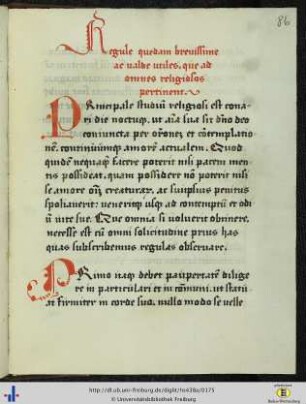 86
Regule quedam brevissime
ac valde utiles, que ad
omnes religiosos
pertinent.
Principale studiū religiosi est cona
ri die noctuqȝ, ut aīa sua sit dn̄o deo
coniuncta per or̄onez et cōtemplatio
nē, continuūmqȝ amorē actualem. Quod
quidē nequaqȝ facere poterit nisi pacem men
tis possideat, quam possidere nō poterit nisi
se amore om̄ creaturarȝ, ac suiipsius penitus
spoliaverit: veneritqȝ usqȝ ad contemptū et odi
ū vite sue. Que omnia si voluerit obtinere,
necesse est cū omni solicitudine prius has
quas subscribemus regulas observare.
Primo itaqȝ debet paupertatē dilige
re in particulari et in cōmuni, ut statu
at firmiter in corde suo, nullo modo se velle
http://dl.ub.uni-freiburg.de/diglit/hs436a/0175
© Universitätsbibliothek Freiburg